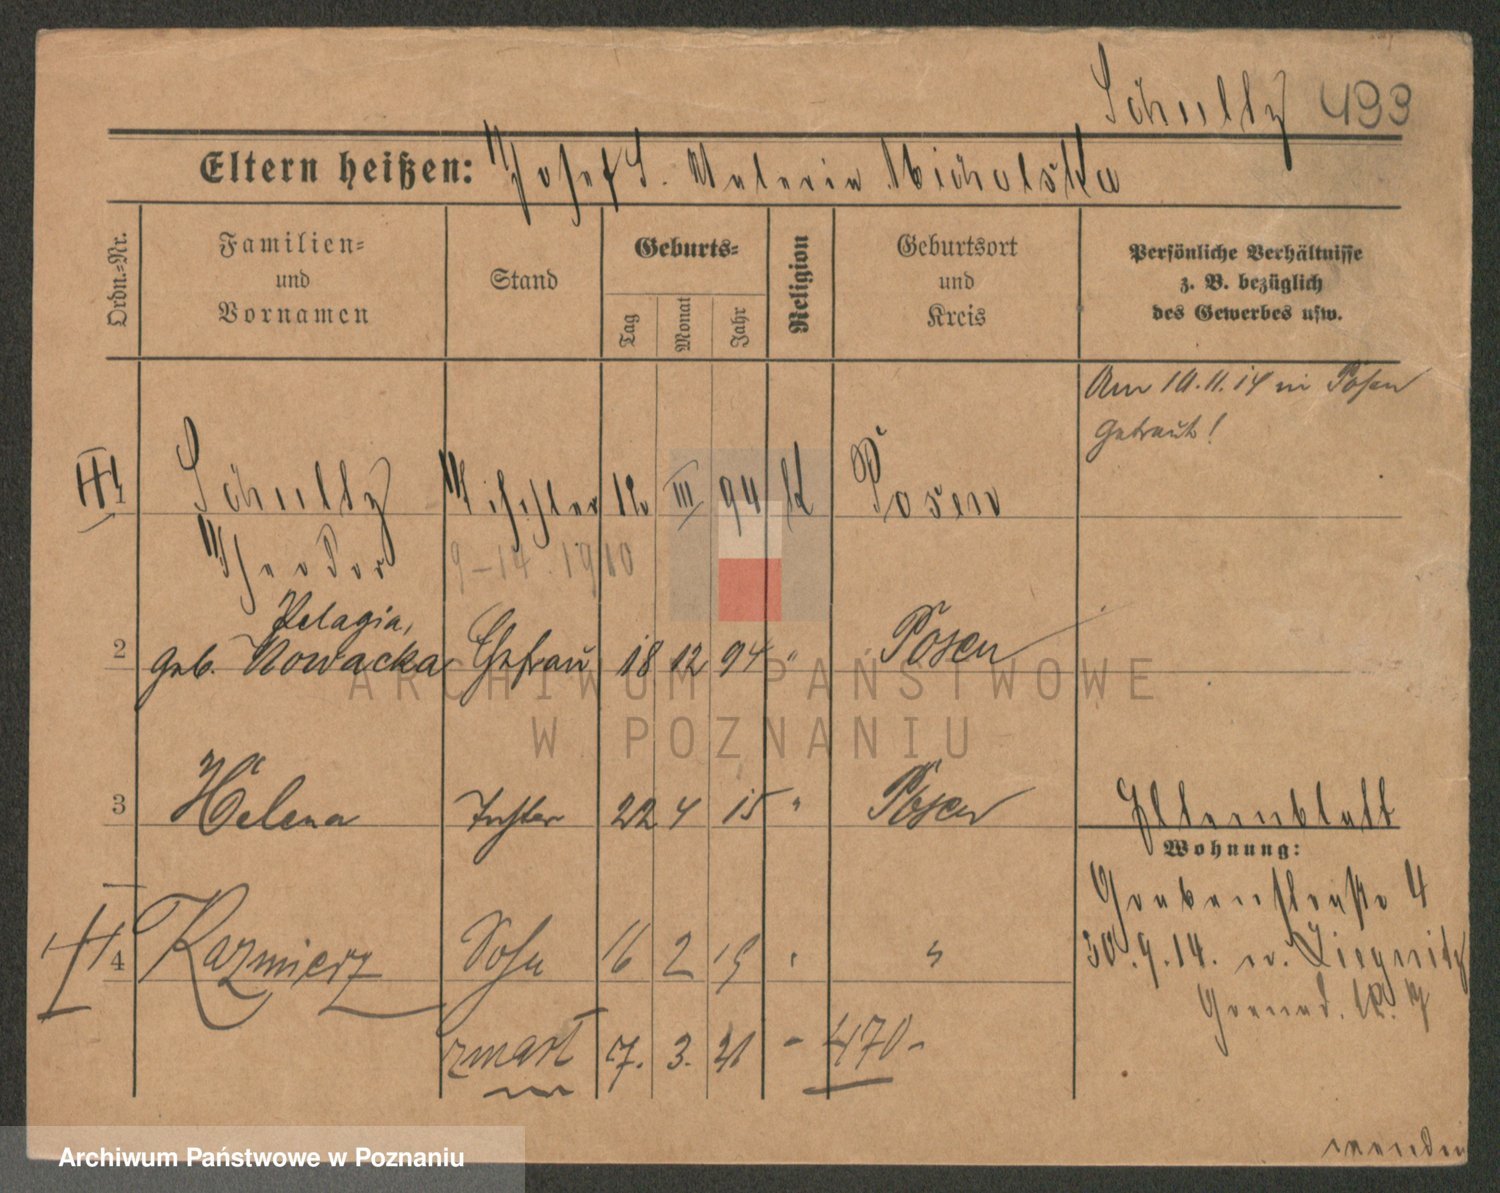 Schultz 493
Eltern heißen: Josef S. Valeria Michalska
Ordn.=Nr.
Familien=
und
Vornamen
Stand
Geburts=
Tag
Monat
Jahr
Religion
Geburtsort
und
Kreis
Persönliche Verhältnisse
z. B. bezüglich
des Gewerbes usw.
Am 10.11.14 in Posen
getraut!
1 Schultz Tischler 12 III 94 K Posen
Theodor 9-14.1910
Pelagia,
2 geb. Nowacka Ehefrau 18 12 94 " Posen
3 Helena Tochter 22 4 15 " Posen
Elternblatt
Wohnung:
Grabenstraße 4
4 Kazmierz Sohn 16 2 19 " "
30.9.14. n. Liegnitz
Grenad. R. 7
zmarł 7. 3. 21 - 470-
wenden
ARCHIWUM PAŃSTWOWE
W POZNANIU
Archiwum Państwowe w Poznaniu